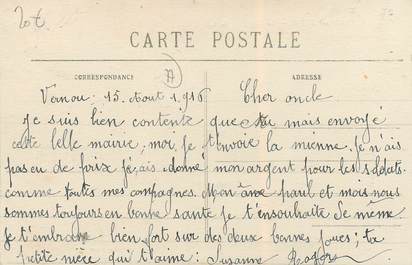 20t
CARTE POSTALE
CORRESPONDANCE A ADRESSE
Vernou 15 Aout 1916 Cher oncle
Je suis bien contente que tu mais envoyé
cette belle mairie, moi, je t'envoie la mienne. Je n'ais
pas eu de prix j'ai donné mon argent pour les soldats.
comme toutes mes compagnes. Mon paul et mois nous
sommes toujours en bonne santé je t'ensouhaite de même
je t'embrasse bien fort sur des deux bonnes joues; ta
petite nièce qui t'aime: Susanne